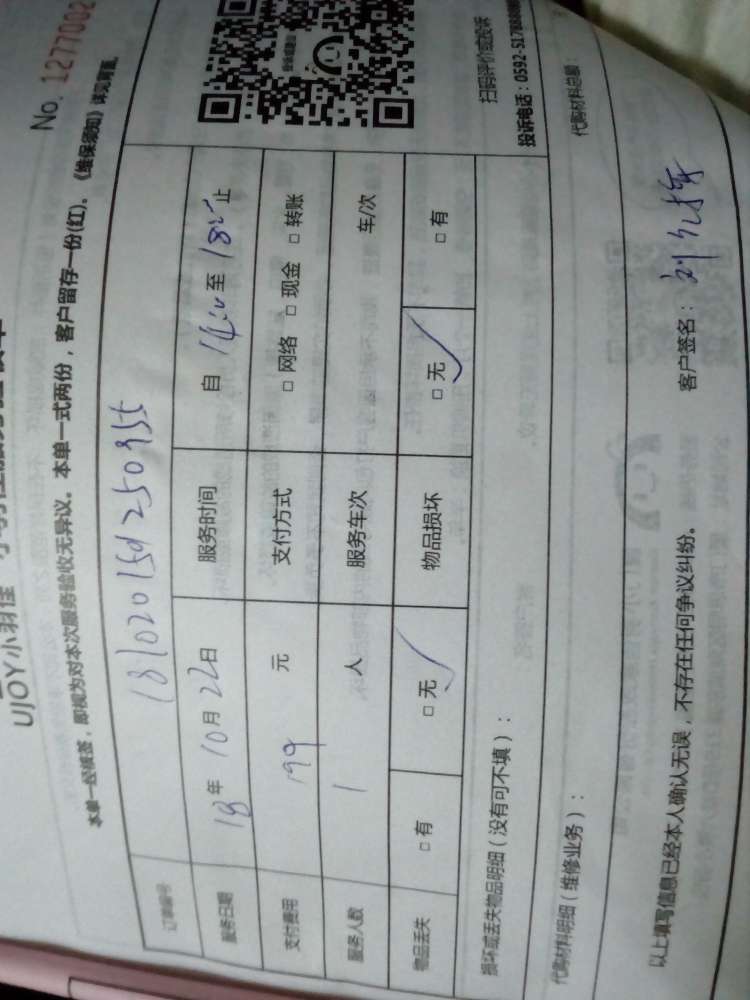 UJOY小羽佳
No. 1277002
本单一经核签，即视为对本次服务验收无异议。本单一式两份，客户留存一份(红)。《维保须知》详见背面。
订单编号
服务日期 18年 10月 22日 服务时间 自 14:00 至 18:00 止
支付费用 199 元 支付方式 □ 网络 □ 现金 □ 转账
服务人数 1 人 服务车次 车/次
物品丢失 □ 有 □ 无 物品损坏 □ 无 □ 有
扫码评价或投诉
损坏或丢失物品明细（没有可不填）：
投诉电话：0592-5178
代购材料明细（维修业务）：
代购材料总额：
以上填写信息已经本人确认无误，不存在任何争议纠纷。
客户签名：